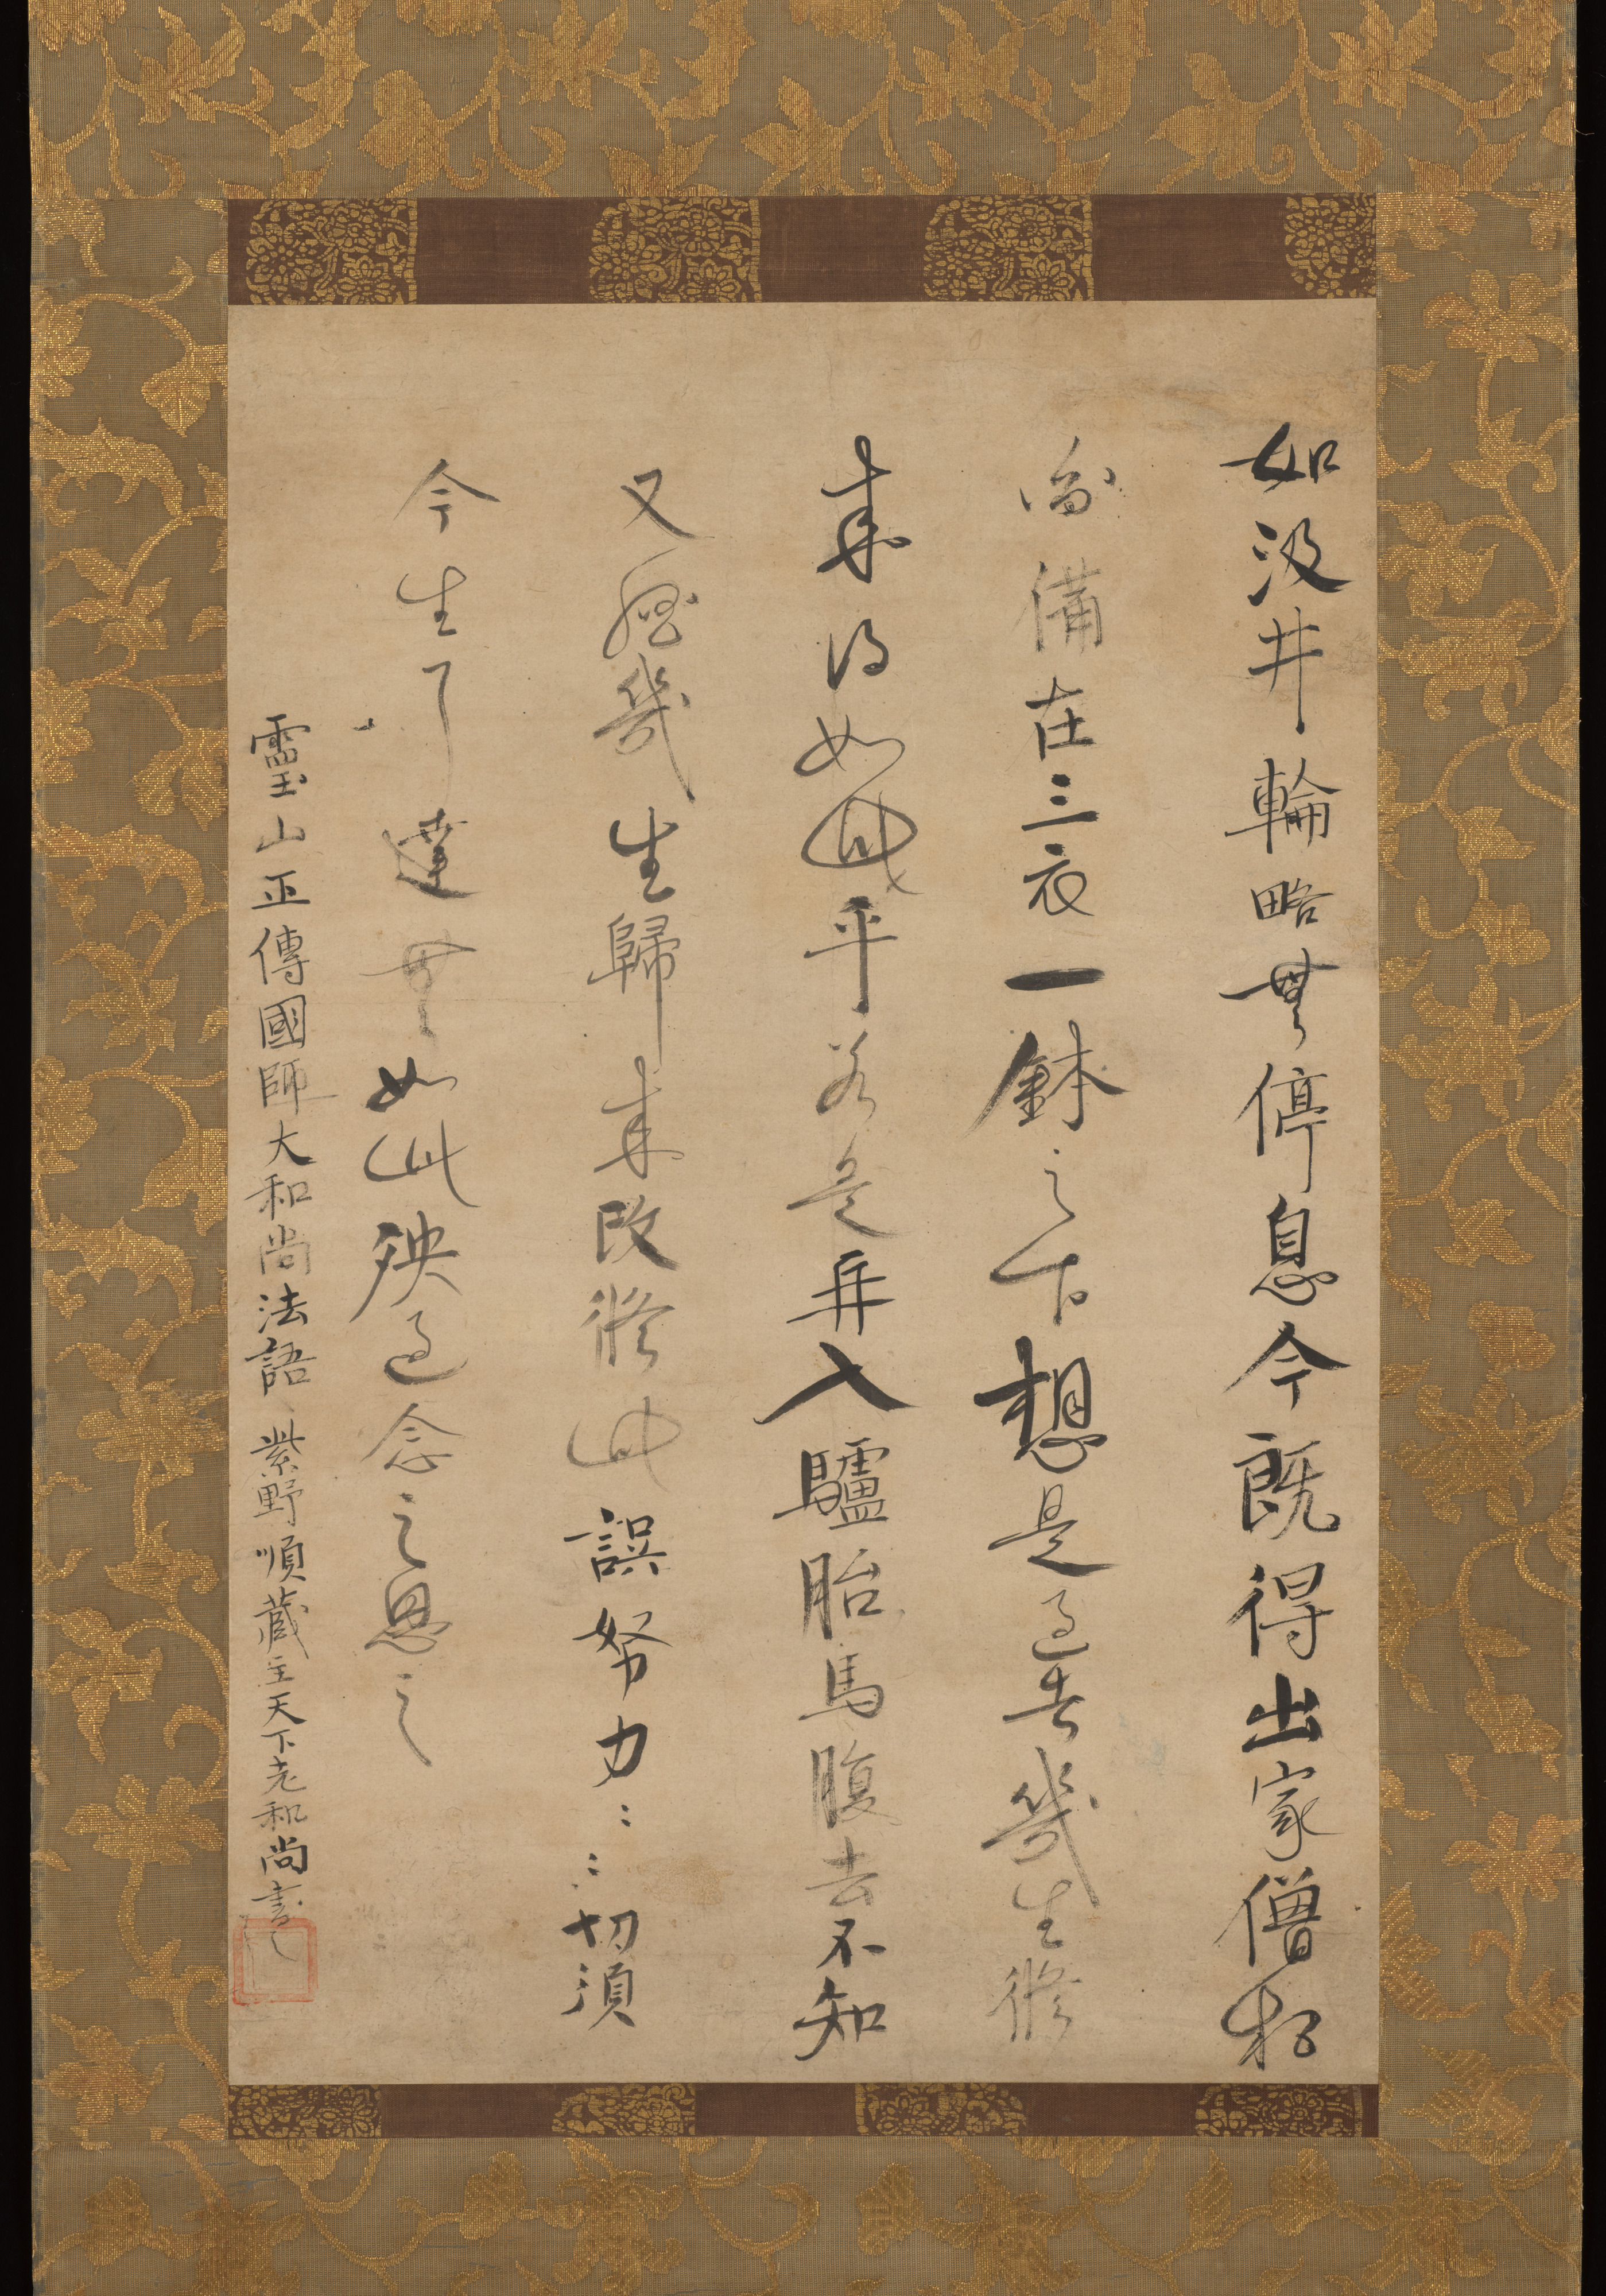 如汲井輪略無停息今既得出家僧相
備在三衣一鉢之下想是過去幾生修
来得如此乎若是再入驢胎馬腹去不知
又經幾生歸来改修此誤努力〻〻切須
今生了達無如此殃過念之思之
靈山正傳國師大和尚法語 紫野順蔵主天下老和尚書之